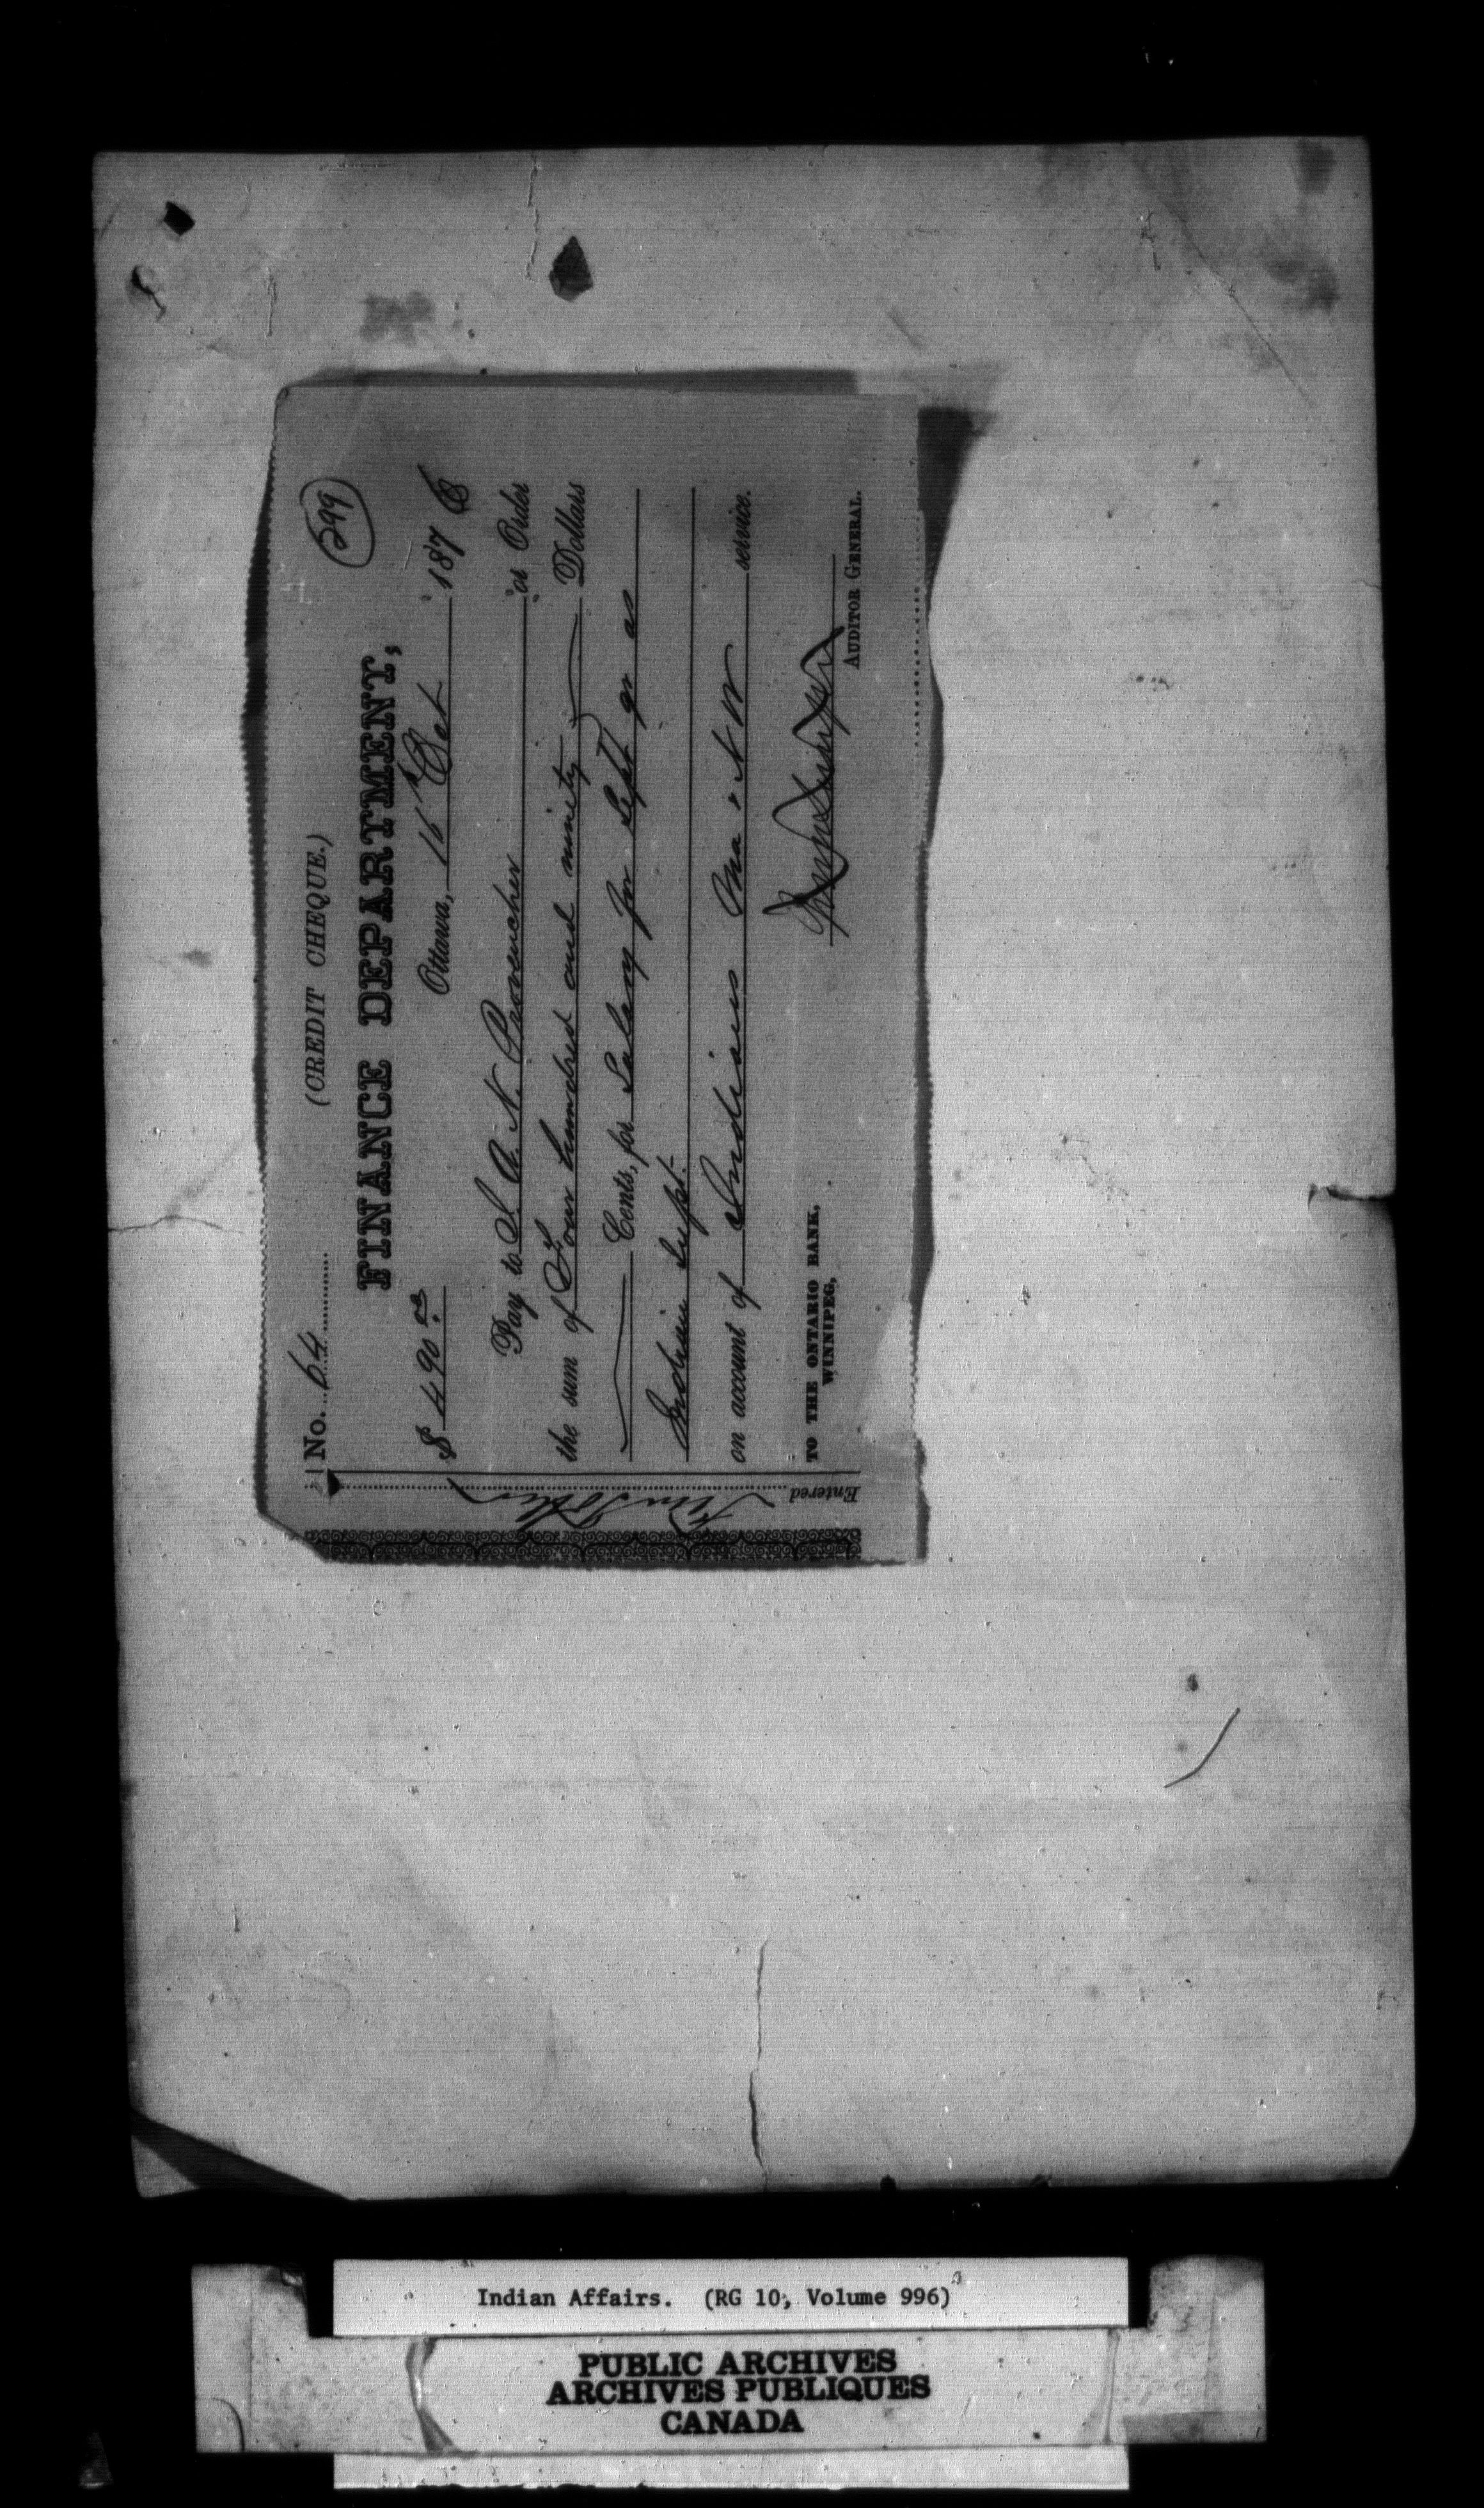 299
No. 64
(CREDIT CHEQUE.)
FINANCE DEPARTMENT,
$ 490.00 Ottawa, 16th Oct 187
Pay to J. A. N. Provencher "or Order
the sum of Four hundred and ninety Dollars
Cents, for Salary for Sept qr as
Indian Supt.
on account of Indians Ma & N W service.
TO THE ONTARIO BANK,
WINNIPEG,
AUDITOR GENERAL.
Entered
Indian Affairs. (RG 10, Volume 996)
PUBLIC ARCHIVES
ARCHIVES PUBLIQUES
CANADA